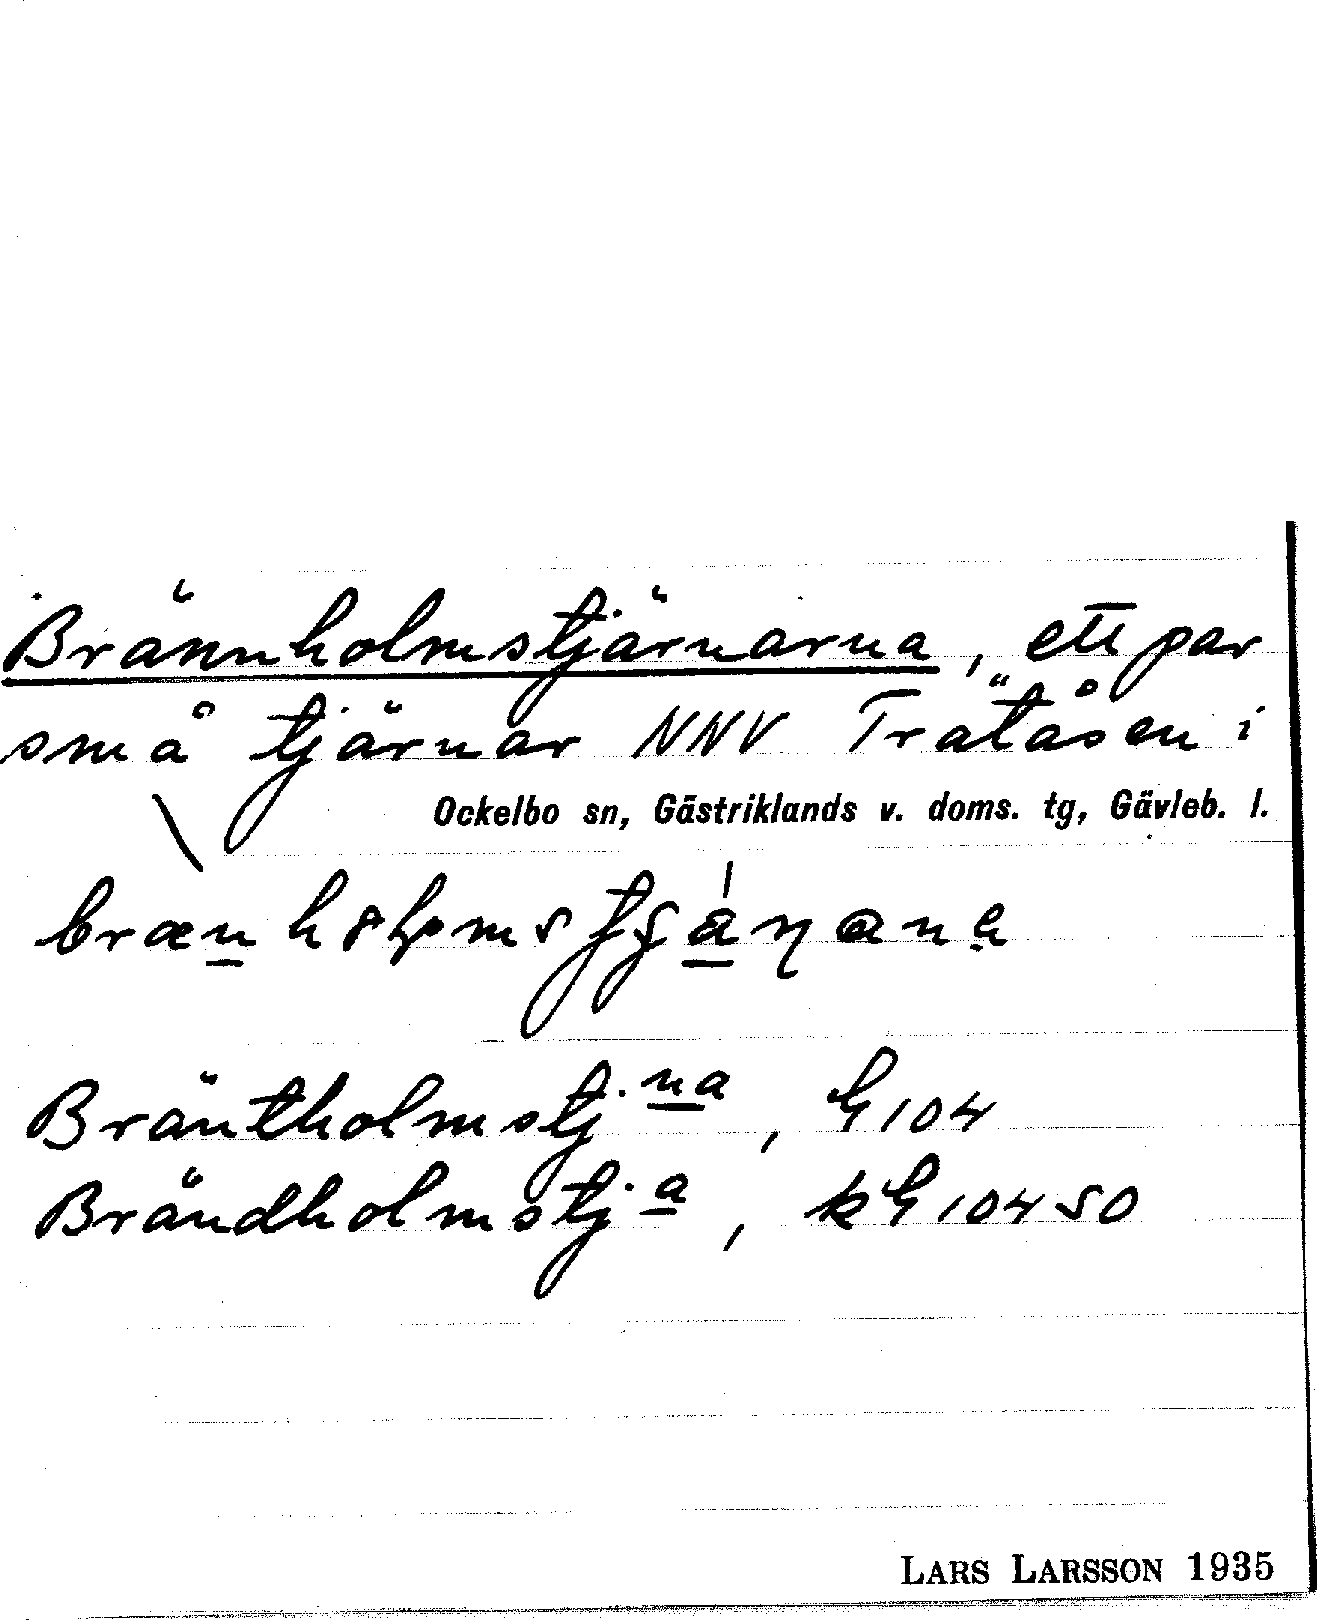 Brännholmstjärnarna, ett par
små tjärnar NNV Tratåsen i
Ockelbo sn, Gästriklands v. doms. tg, Gävleb. l.
Bräntholmstj. na, G 104
Brändholmstj. a, kG 104 50
LARS LARSSON 1935